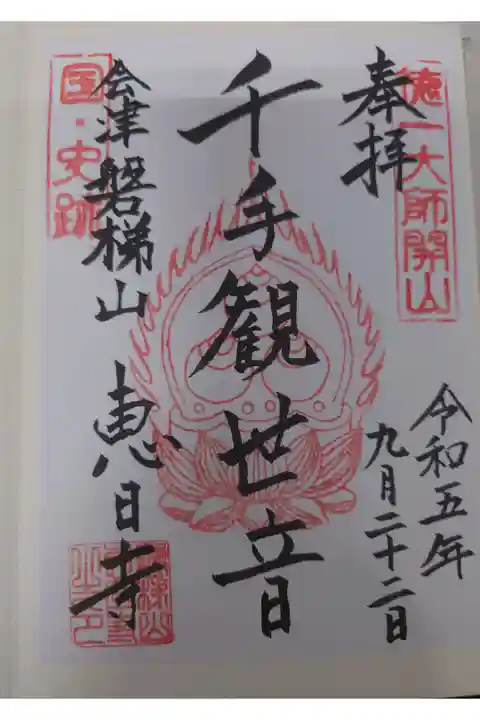 徳一大師開山
奉拝
令和五年
九月二十二日
千手観世音
国・史跡
会津磐梯山 恵日寺